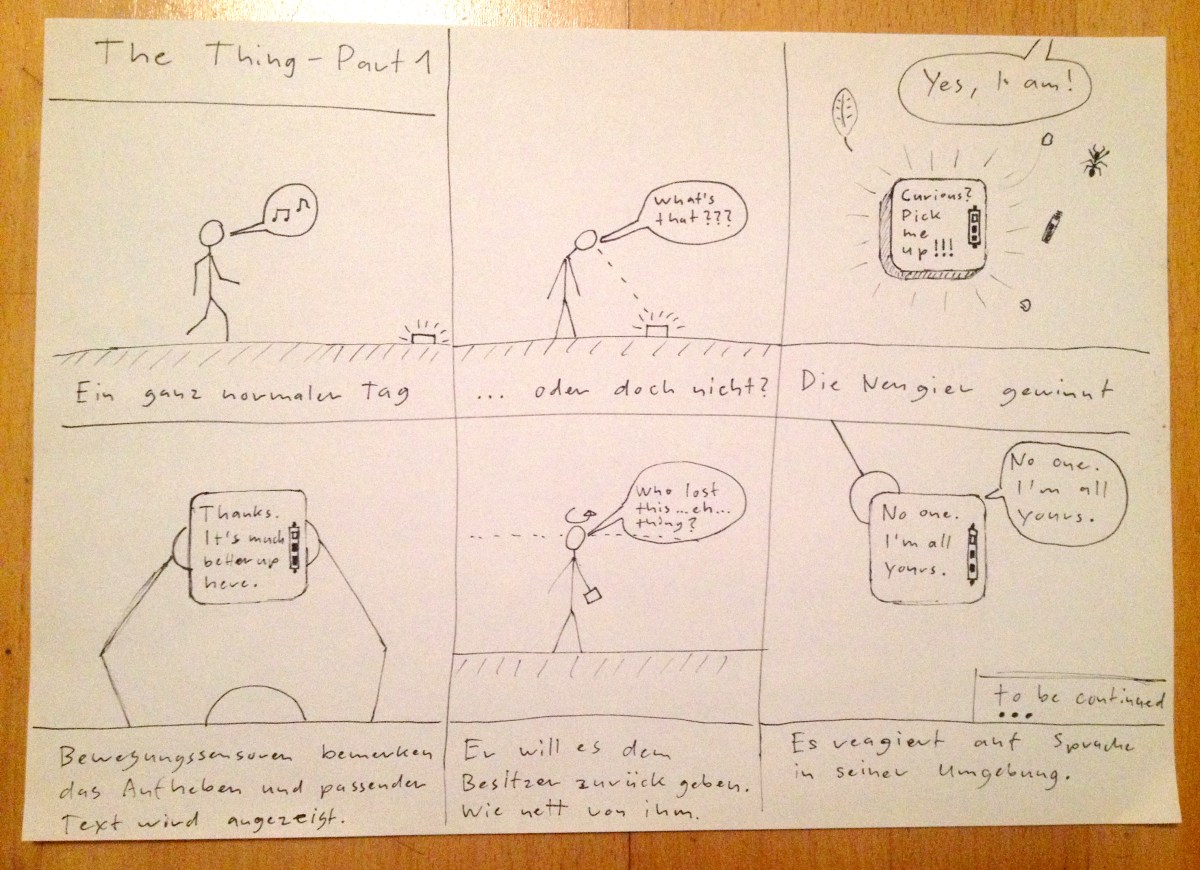 The Thing - Part 1
What's
that???
Yes, I am!
Curious?
Pick
me
up!!!
Ein ganz normaler Tag
... oder doch nicht?
Die Neugier gewinnt
Thanks.
It's much
better up
here.
Who lost
this...eh...
thing?
No one.
I'm all
yours.
No one.
I'm all
yours.
to be continued
...
Bewegungssensoren bemerken
das Aufheben und passender
Text wird angezeigt.
Er will es dem
Besitzer zurück geben.
Wie nett von ihm.
Es reagiert auf Sprache
in seiner Umgebung.